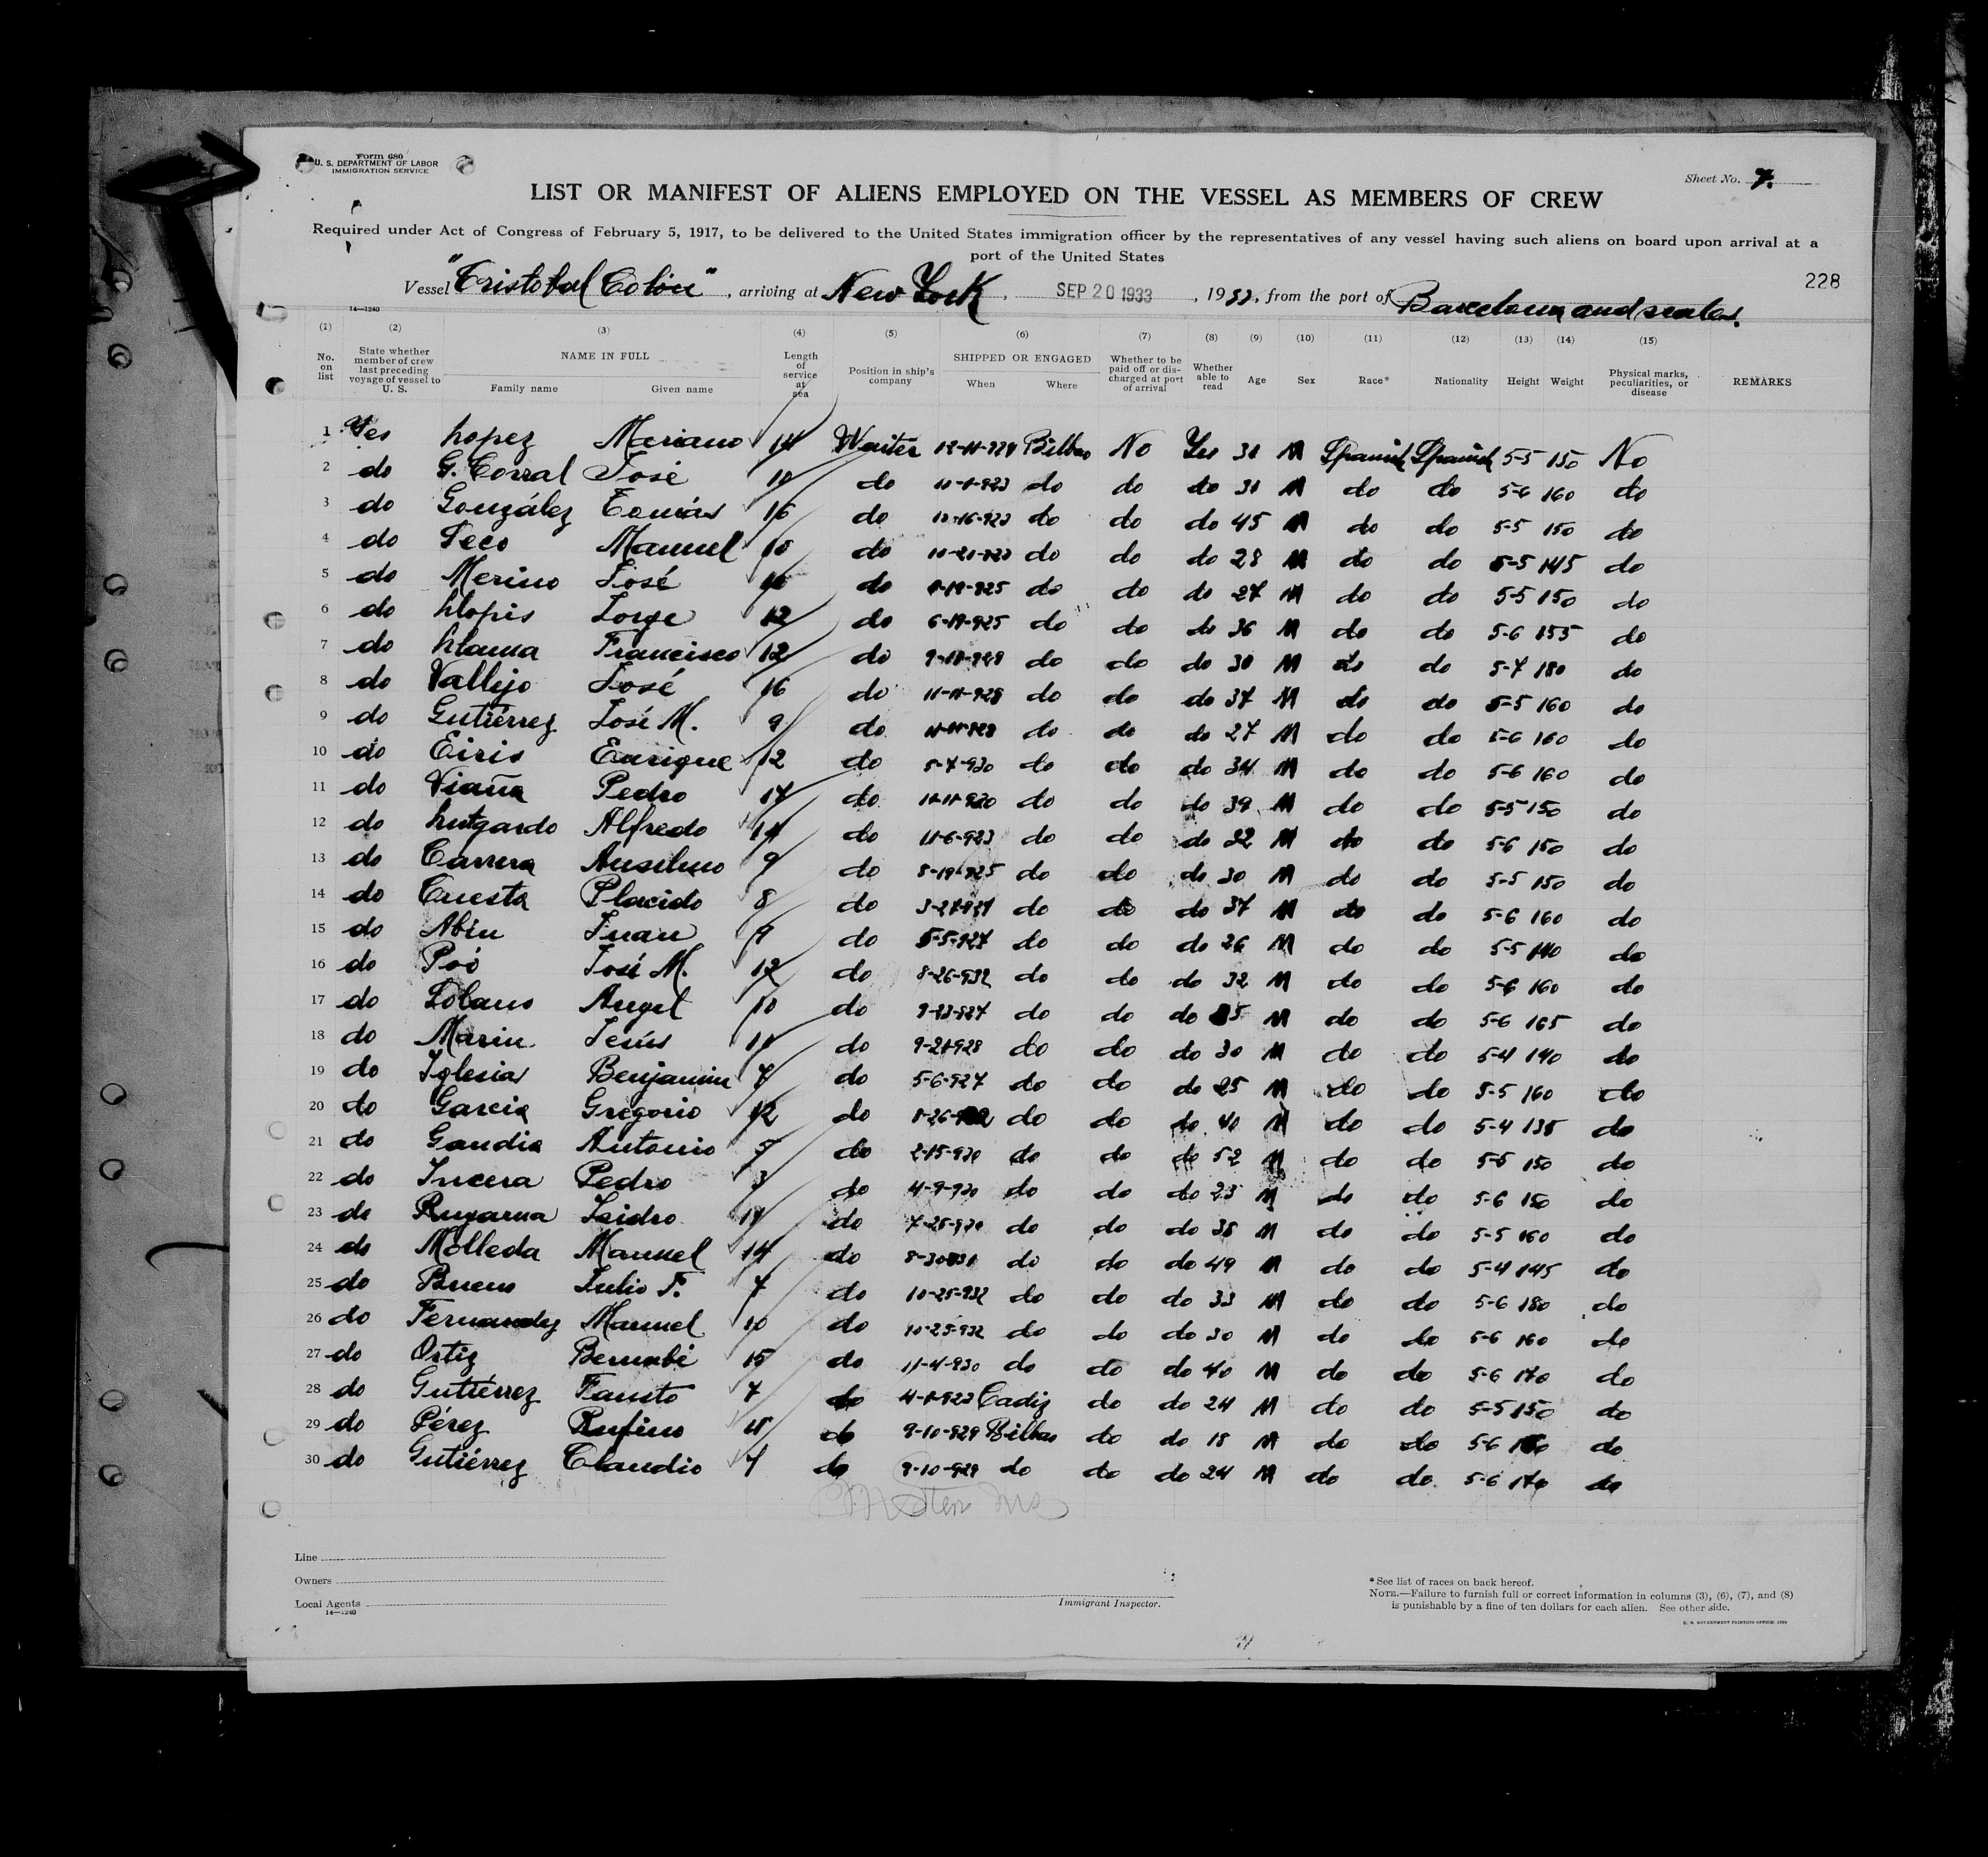 Form 680
U. S. DEPARTMENT OF LABOR
IMMIGRATION SERVICE
Sheet No. 7.
LIST OR MANIFEST OF ALIENS EMPLOYED ON THE VESSEL AS MEMBERS OF CREW
Required under Act of Congress of February 5, 1917, to be delivered to the United States immigration officer by the representatives of any vessel having such aliens on board upon arrival at a
port of the United States
228
Vessel "Cristobal Colón", arriving at New York, SEP 20 1933, 19 , from the port of Barcelona and scales.
14—1240
(1) (2) (3) (4) (5) (6) (7) (8) (9) (10) (11) (12) (13) (14) (15)
No. on list State whether member of crew last preceding voyage of vessel to U. S. NAME IN FULL Family name Given name Length of service at sea Position in ship's company SHIPPED OR ENGAGED When Where Whether to be paid off or discharged at port of arrival Whether able to read Age Sex Race* Nationality Height Weight Physical marks, peculiarities, or disease REMARKS
1 Yes Lopez Mariano 14 Waiter Bilbao No Yes 31 M Spanish Spanish 5-5 150 No
2 do G. Corral José do do do do M do do 5-6 160 do
3 do González Tomás 16 do do do do 45 M do do 5-5 150 do
4 do Seco Manuel 10 do do do do 28 M do do 5-5 145 do
5 do Merino José do do do do 27 M do do 5-5 150 do
6 do Llopis Jorge 12 do 6-19-925 do do do 36 M do do 5-6 155 do
7 do Llama Francisco 12 do do do do 30 M do do 5-7 180 do
8 do Vallejo José 16 do 11-11-928 do do do 37 M do do 5-5 160 do
9 do Gutiérrez José M. 9 do do do do 27 M do do 5-6 160 do
10 do Eiris Enrique 12 do 5-7-930 do do do 34 M do do 5-6 160 do
11 do Viaña Pedro 17 do do do do 39 M do do 5-5 150 do
12 do Lutgardo Alfredo 14 do 11-6-923 do do do 32 M do do 5-6 150 do
13 do Carrera Anselmo 9 do 8-19-925 do do do 30 M do do 5-5 150 do
14 do Cuesta Placido 8 do do do do 37 M do do 5-6 160 do
15 do Abin Juan 9 do 5-5-927 do do do 26 M do do 5-5 140 do
16 do Poó José M. 12 do 8-26-932 do do do 32 M do do 5-6 160 do
17 do Solano Angel 10 do do do do M do do 5-6 165 do
18 do Marin Jesús do 9-21-928 do do do 30 M do do 5-4 140 do
19 do Iglesias Benjamin 7 do 5-6-927 do do do 25 M do do 5-5 160 do
20 do Garcia Gregorio 12 do do do do 40 M do do 5-4 135 do
21 do Gandia Antonio 5 do 2-15-930 do do do 52 M do do 5-5 150 do
22 do Incera Pedro 3 do 4-9-930 do do do 23 M do do 5-6 150 do
23 do Rugarma Isidro do 7-25-930 do do do 38 M do do 5-5 160 do
24 do Molleda Manuel 14 do do do do 49 M do do 5-4 145 do
25 do Bueno Julio F. 7 do 10-25-932 do do do 33 M do do 5-6 180 do
26 do Fernandez Manuel 10 do 10-25-932 do do do 30 M do do 5-6 160 do
27 do Ortiz Bernabé 15 do 11-4-930 do do do 40 M do do 5-6 170 do
28 do Gutiérrez Fausto 7 do Cadiz do do 24 M do do 5-5 150 do
29 do Pérez Rufino do 9-10-929 Bilbao do do 18 M do do 5-6 do
30 do Gutiérrez Claudio do 9-10-929 do do do 24 M do do 5-6 170 do
Line
Owners
Local Agents
14—1240
Immigrant Inspector.
* See list of races on back hereof.
NOTE.—Failure to furnish full or correct information in columns (3), (6), (7), and (8)
is punishable by a fine of ten dollars for each alien. See other side.